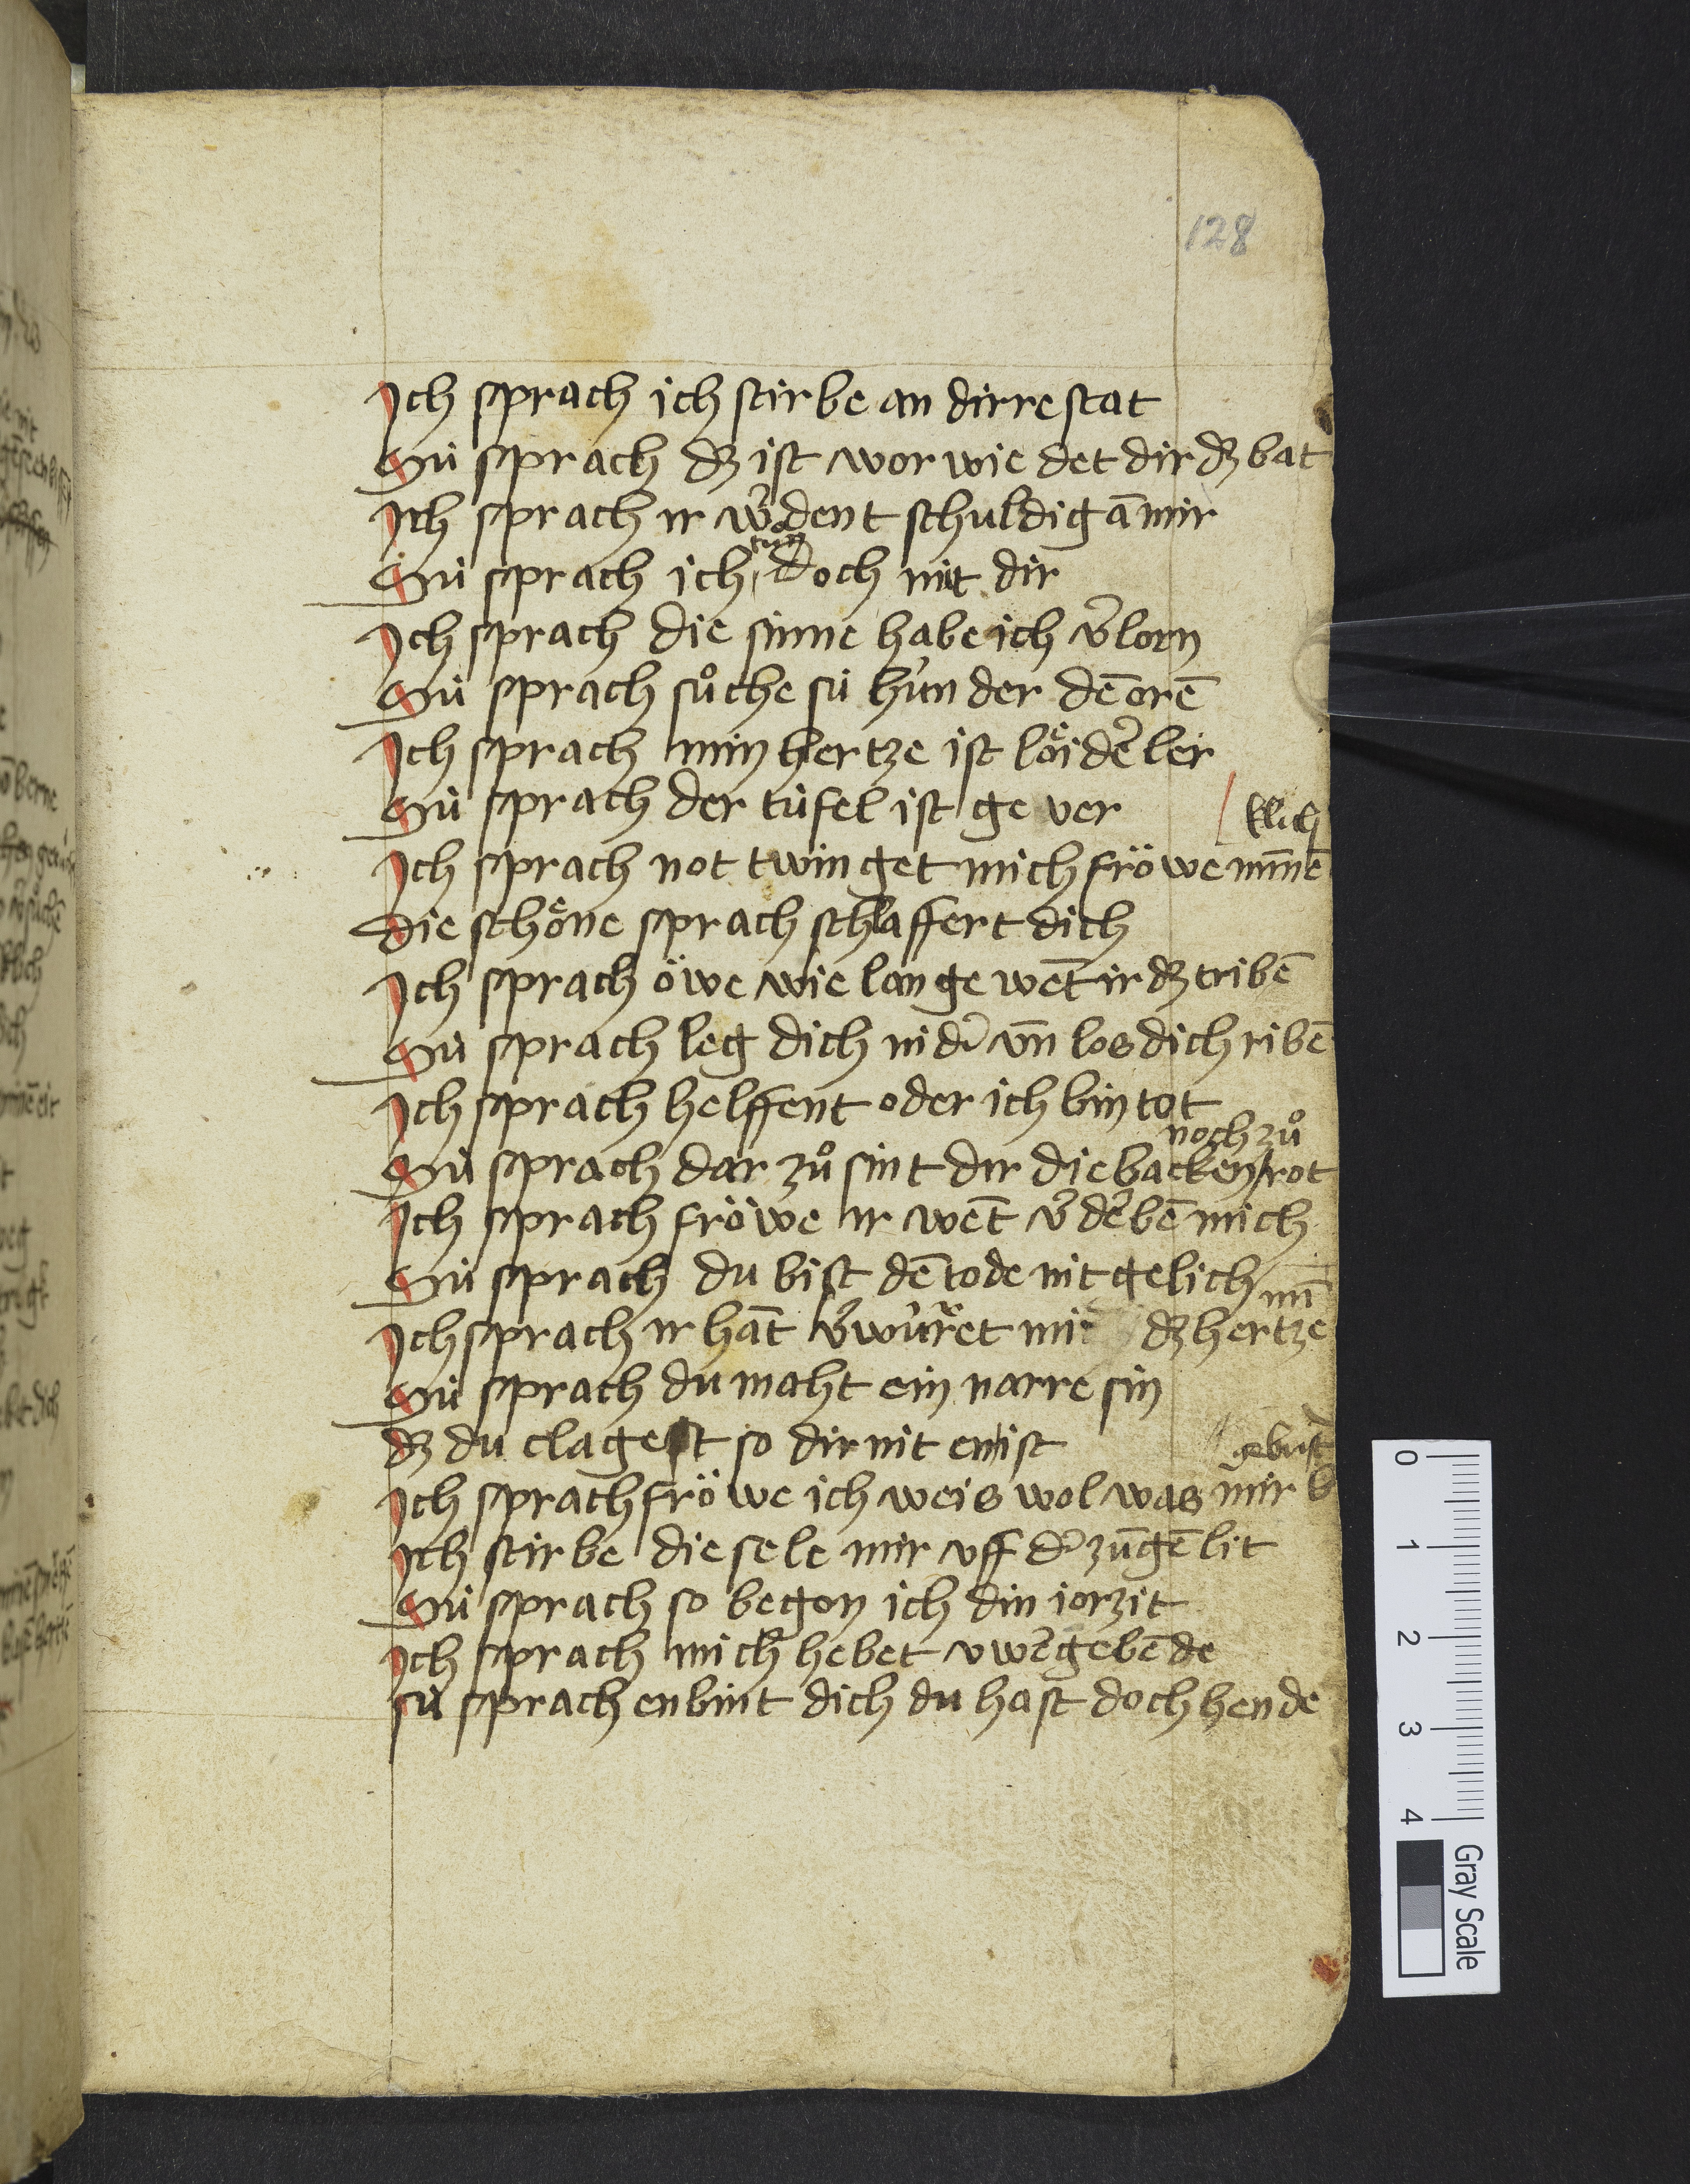 128
Ich sprach ich stirbe an dirre stat
Sü sprach dz ist wor wie det dir dz bat
Ich sprach ir w̉dent schuldig ā mir
Sü sprach ich tun doch nüt dir
Ich sprach die sinne habe ich v̉lorn
Sü sprach sůche sü hünder dē orē
Ich sprach min hertze ist löider̉ ler
Sü sprach der tüfel ist ge ver
klich
Ich sprach not twinget mich fröwe mīnē
die schöne sprach schlaffert dich
Ich sprach öwe wie lange wēt ir dz tribē
Sü sprach leg dich nid̉ vn̄ los dich ribē
Ich sprach helffent oder ich bin tot
noch zů
Sü sprach dar zů sint dir die backen rot
Ich sprach fröwe ir wēt v̉der̉bē mich
Sü sprach du bist dē tode nit gelich
mī
Ich sprach ir hāt v̉würet mir dz hertze
Sü sprach du maht ein narre sin
dz du clagest so dir nit enist
gebrist
Ich sprach fröwe ich weis wol was mir
Ich stirbe die sele mir vff d̉ zūgē lit
Sü sprach so begon ich din jorzit
Ich sprach mich hebet vwer̉ gebēde
sü sprach enbint dich du hast doch hende
0 1 2 3 4
Gray Scale